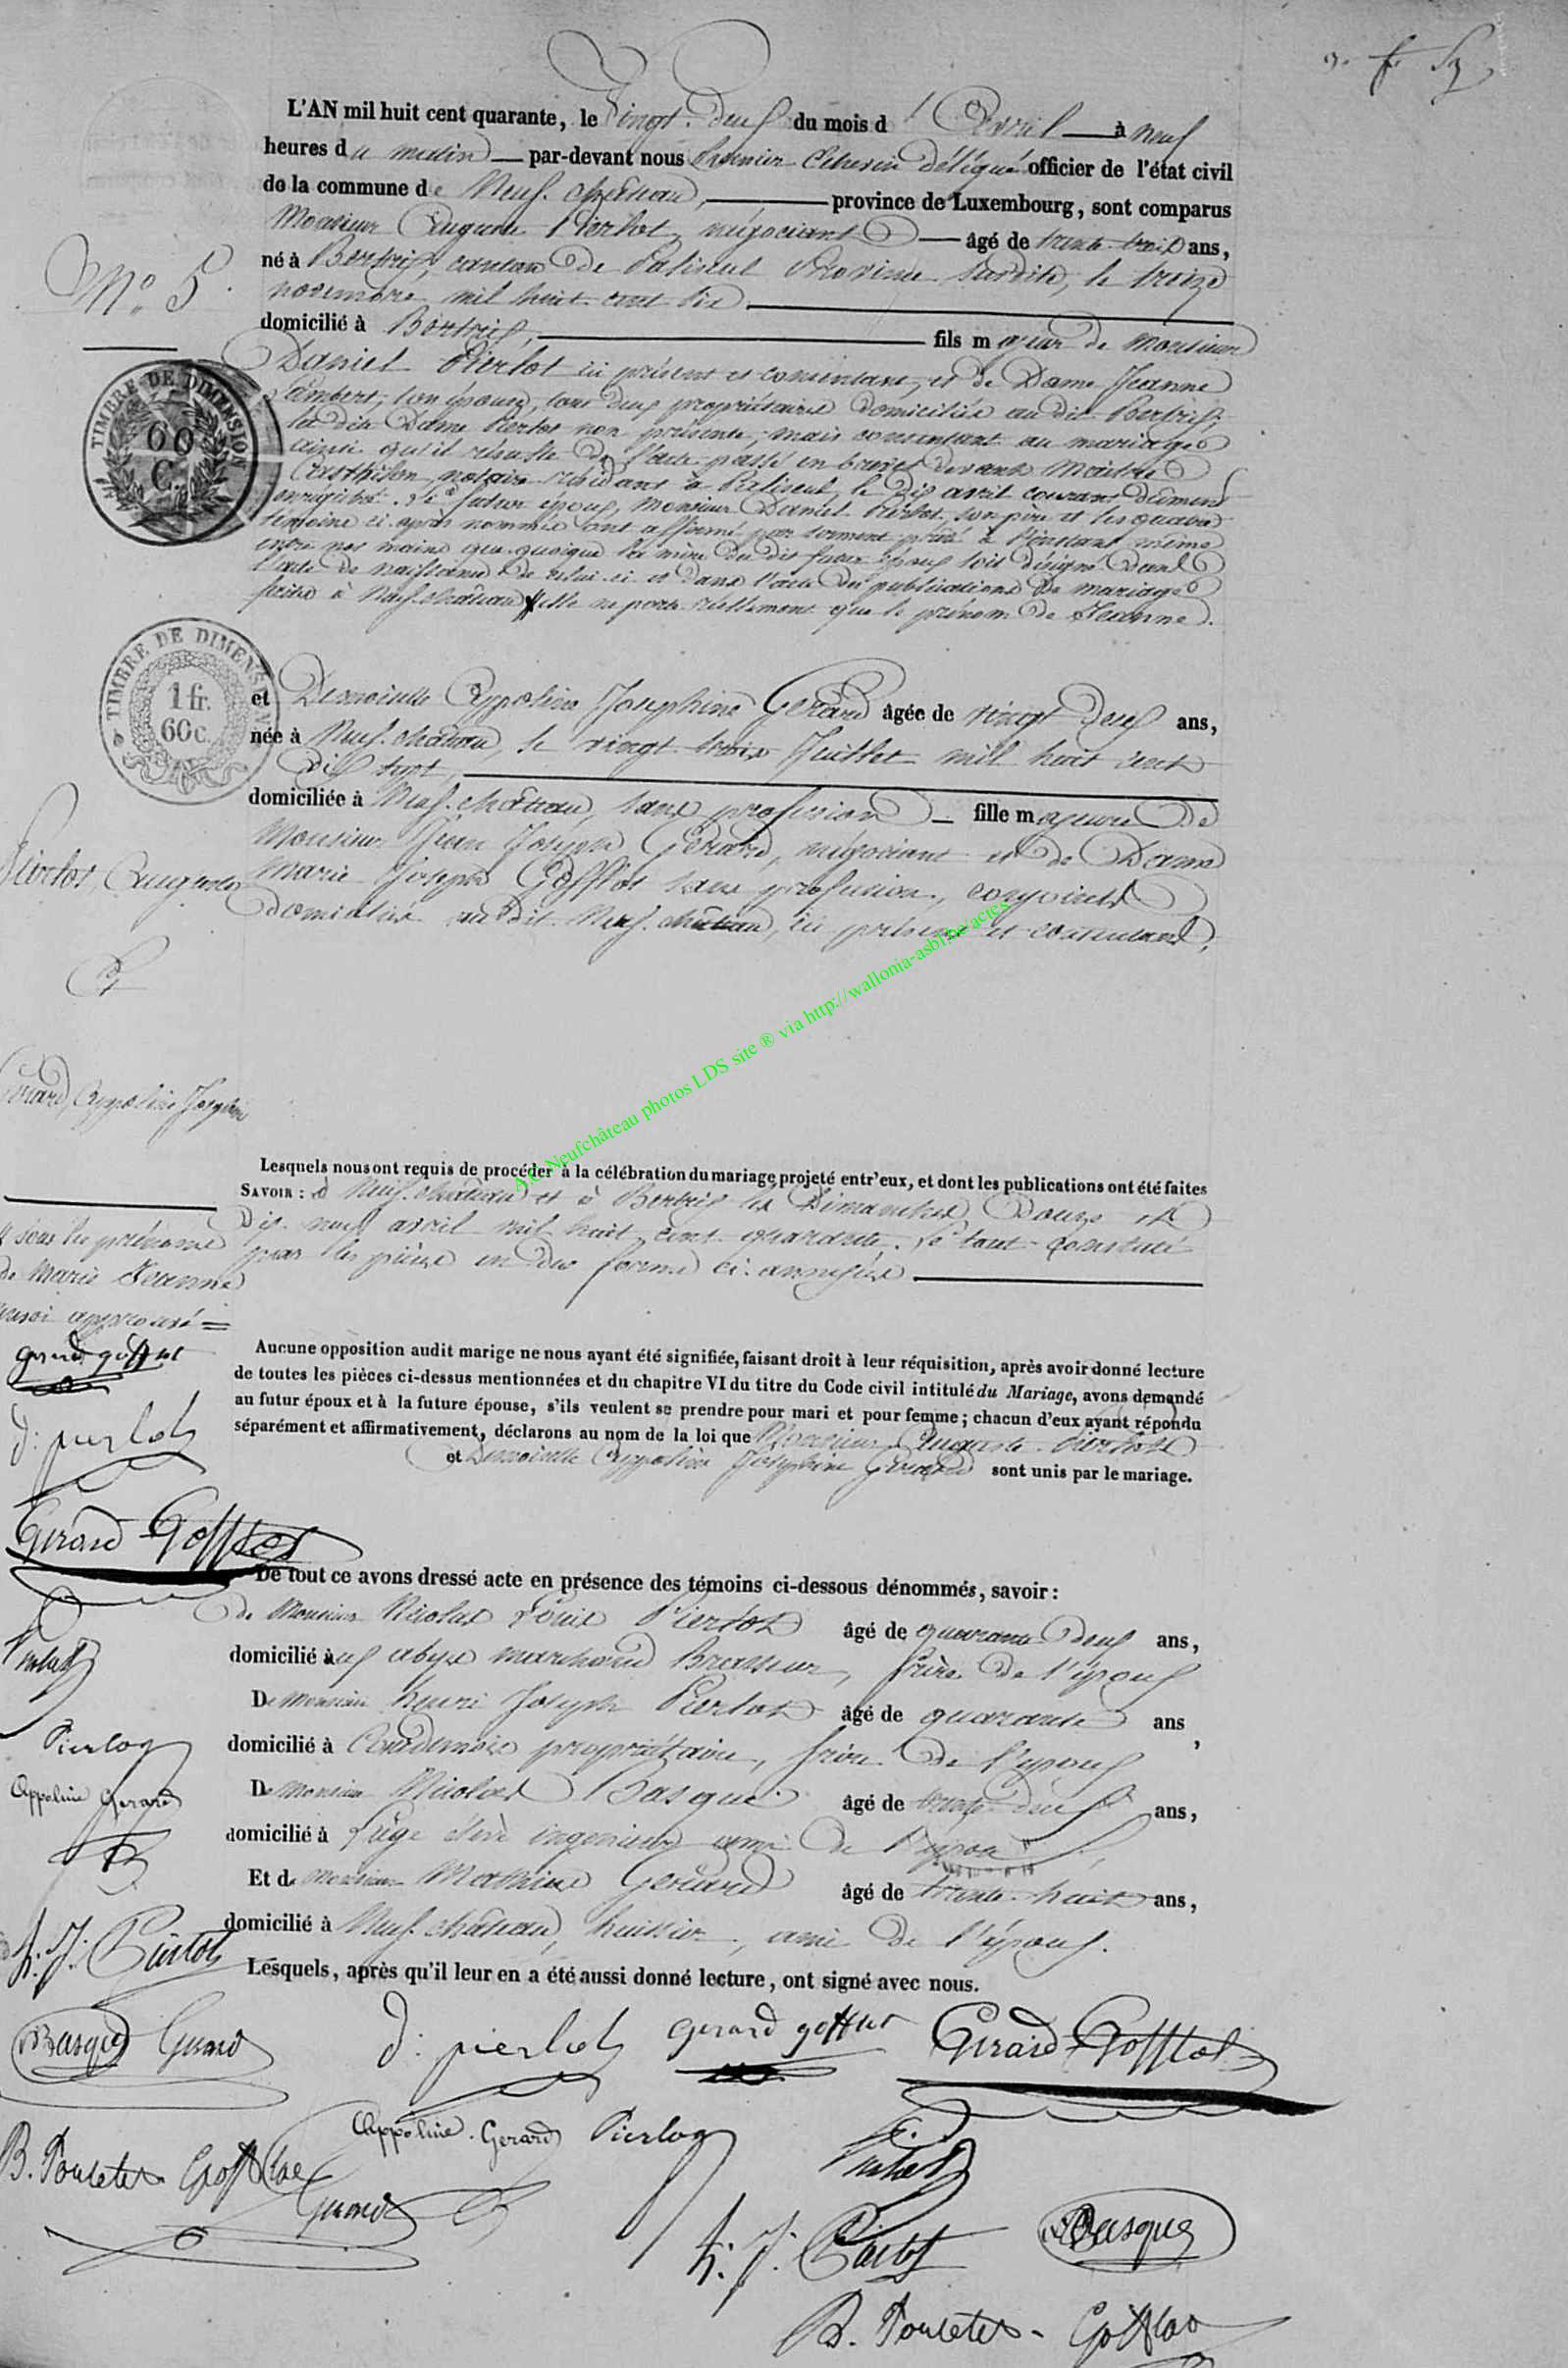 L'AN mil huit cent quarante, le Vingt-Deux du mois d'Avril à neuf
heures du matin par-devant nous Premier Echevin délégué officier de l'état civil
de la commune de Neuf-château, province de Luxembourg, sont comparus
Monsieur Auguste Pierlot, négociant âgé de trente-trois ans,
né à Bertrix, canton de Paliseul Province susdite, le treize
novembre mil huit cent six
domicilié à Bertrix, fils majeur de Monsieur
Daniel Pierlot ici présent et consentant, et de Dame Jeanne
Lambert, son épouse, tous deux propriétaires domiciliés au dit Bertrix,
la dite Dame Pierlot non présente, mais consentant au mariage
ainsi qu'il résulte de l'acte passé en brevet devant Maître
notaire résidant à Paliseul, le dix avril courant dûment
enregistré. Le futur époux, Monsieur Daniel Pierlot, son père et les quatre
témoins ci-après nommés ont affirmé par serment prêté à l'instant même
entre nos mains que quoique la mère du dit futur époux soit désigné dans
l'acte de naissance de celui-ci et dans l'acte des publications de mariage
faites à Neuf-château elle ne porte réellement que le prénom de Jeanne.
N° 5
TIMBRE DE DIMENSION
60 C.
TIMBRE DE DIMENSION
1 fr. 60 c.
et Demoiselle Appoline Josephine Gerard âgée de vingt deux ans,
née à Neuf-château, le vingt-trois Juillet mil huit cent
dix sept,
domiciliée à Neuf-château, sans profession fille majeure de
Monsieur Jean Joseph Gérard, négociant et de Dame
Marie Joseph Gofflot sans profession, conjoints
domiciliés au dit Neuf-château, ici présens et consentans,
Pierlot, Auguste
Et
Gerard, Appoline Josephine
A.C. Neufchâteau photos LDS site ® via http://wallonia-asbl.be/actes
Lesquels nous ont requis de procéder à la célébration du mariage projeté entr'eux, et dont les publications ont été faites
SAVOIR : à Neuf-château et à Bertrix les Dimanches Douze et
Dix-neuf avril mil huit cent quarante. Le tout constaté
par les pièces en due forme ci-annexées
sous les prénoms
de Marie Jeanne
approuvé =
gerard gofflot
d: pierlot
Gerard Gofflot
Aucune opposition audit marige ne nous ayant été signifiée, faisant droit à leur réquisition, après avoir donné lecture
de toutes les pièces ci-dessus mentionnées et du chapitre VI du titre du Code civil intitulé du Mariage, avons demandé
au futur époux et à la future épouse, s'ils veulent se prendre pour mari et pour femme ; chacun d'eux ayant répondu
séparément et affirmativement, déclarons au nom de la loi que Monsieur Auguste Pierlot
et Demoiselle Appoline Josephine Gerard sont unis par le mariage.
De tout ce avons dressé acte en présence des témoins ci-dessous dénommés, savoir :
de Monsieur Nicolas Louis Pierlot âgé de quarante deux ans,
domicilié aux abys marchand Brasseur, frère de l'époux
De Monsieur henri Joseph Pierlot âgé de quarante ans,
domicilié à propriétaire, frère de l'époux
De Monsieur Nicolas Basque âgé de trente deux ans,
domicilié à Liège élève ingénieur ami de l'époux
Et de Monsieur Mathieu Gerard âgé de trente-huit ans,
domicilié à Neuf-château, huissier, ami de l'époux.
Lesquels, après qu'il leur en a été aussi donné lecture, ont signé avec nous.
Pierlot
Appoline Gerard
h. J. Pierlot
Basque Gerard
d: pierlot gerard gofflot Gerard-Gofflot
Appoline Gerard Pierlot Pierlot
B. Poncelet Gofflot
Gerard
h. J. Pierlot Basque
B. Poncelet - Gofflot